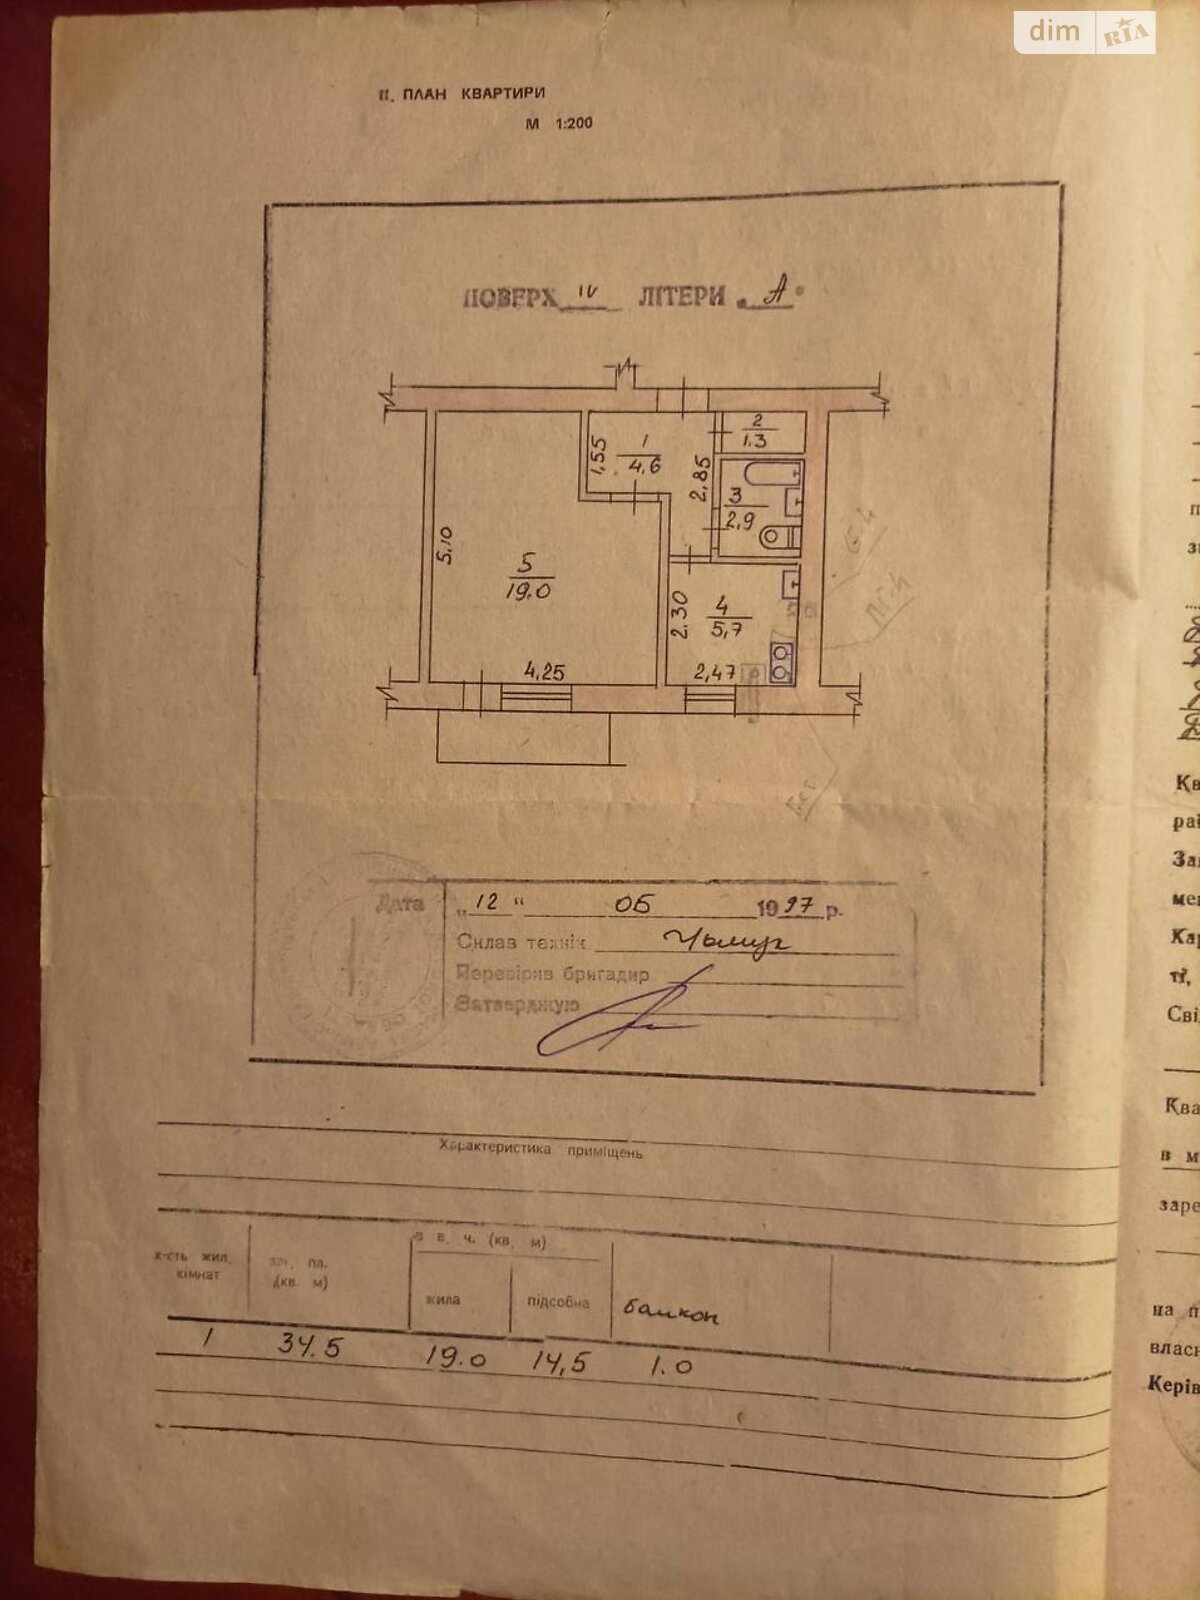 dim RIA
II. ПЛАН КВАРТИРИ
М 1:200
ПОВЕРХ IV ЛІТЕРИ „А"
1
4.6
1,55
2
1.3
2.85
3
2,9
5.10
5
19.0
4.25
2.30
4
5,7
2,47
ПГ-4
Дата „12" 06 1997 р.
Склав технік
Перевірив бригадир
Затверджую
Характеристика приміщень
к-сть жил. кімнат
заг. пл. (кв. м)
в т. ч. (кв. м)
жила
підсобна
балкон
1 34.5 19.0 14,5 1.0
Кв
рай
За
мег
Кар
ті,
Сві
Ква
в м
заре
на п
власн
Керів